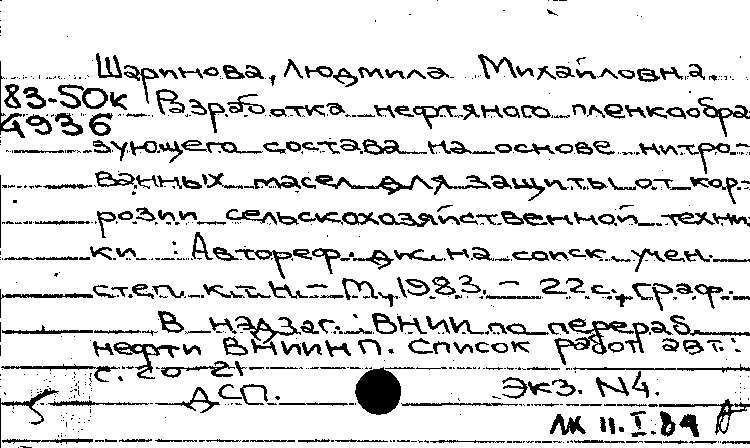 Шаринова, Людмила Михайловна.
83-50к
4936
Разработка нефтяного пленкообра
зующего состава на основе нитро-
ванных масел для защиты от кор-
розии сельскохозяйственной техни
ки : Автореф. дис. на соиск. учен.
степ. к.т.н. - М., 1983. - 22 с., граф.
В надзаг.: ВНИИ по перераб.
нефти ВНИИНП. Список работ авт.:
с. 20-21
ДСП.
Экз. N4.
5
ЛК 11.I.84